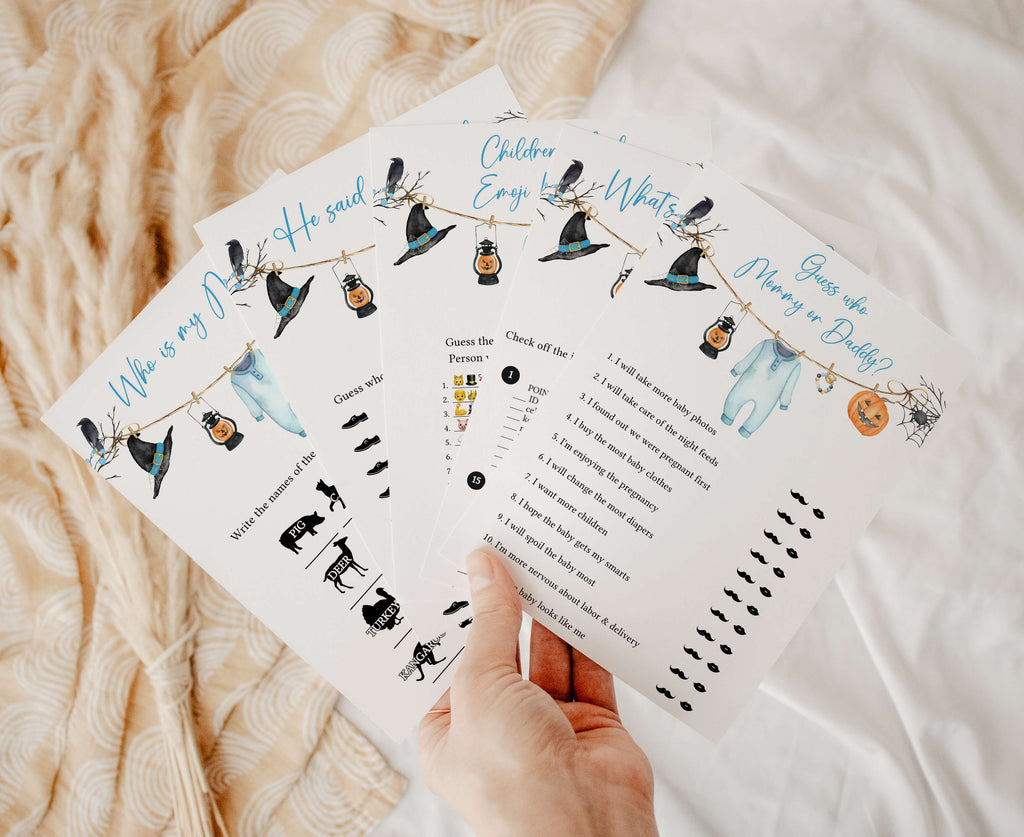 Who is my
Write the names of the
PIG
DEER
TURKEY
He said
Guess who
Children
Emoji
Guess the
Person
1.
2.
3.
4.
5.
6.
7.
What's
Check off the
1
15
Guess who
Mommy or Daddy?
1. I will take more baby photos
2. I will take care of the night feeds
3. I found out we were pregnant first
4. I buy the most baby clothes
5. I'm enjoying the pregnancy
6. I will change the most diapers
7. I want more children
8. I hope the baby gets my smarts
9. I will spoil the baby most
10. I'm more nervous about labor & delivery
baby looks like me